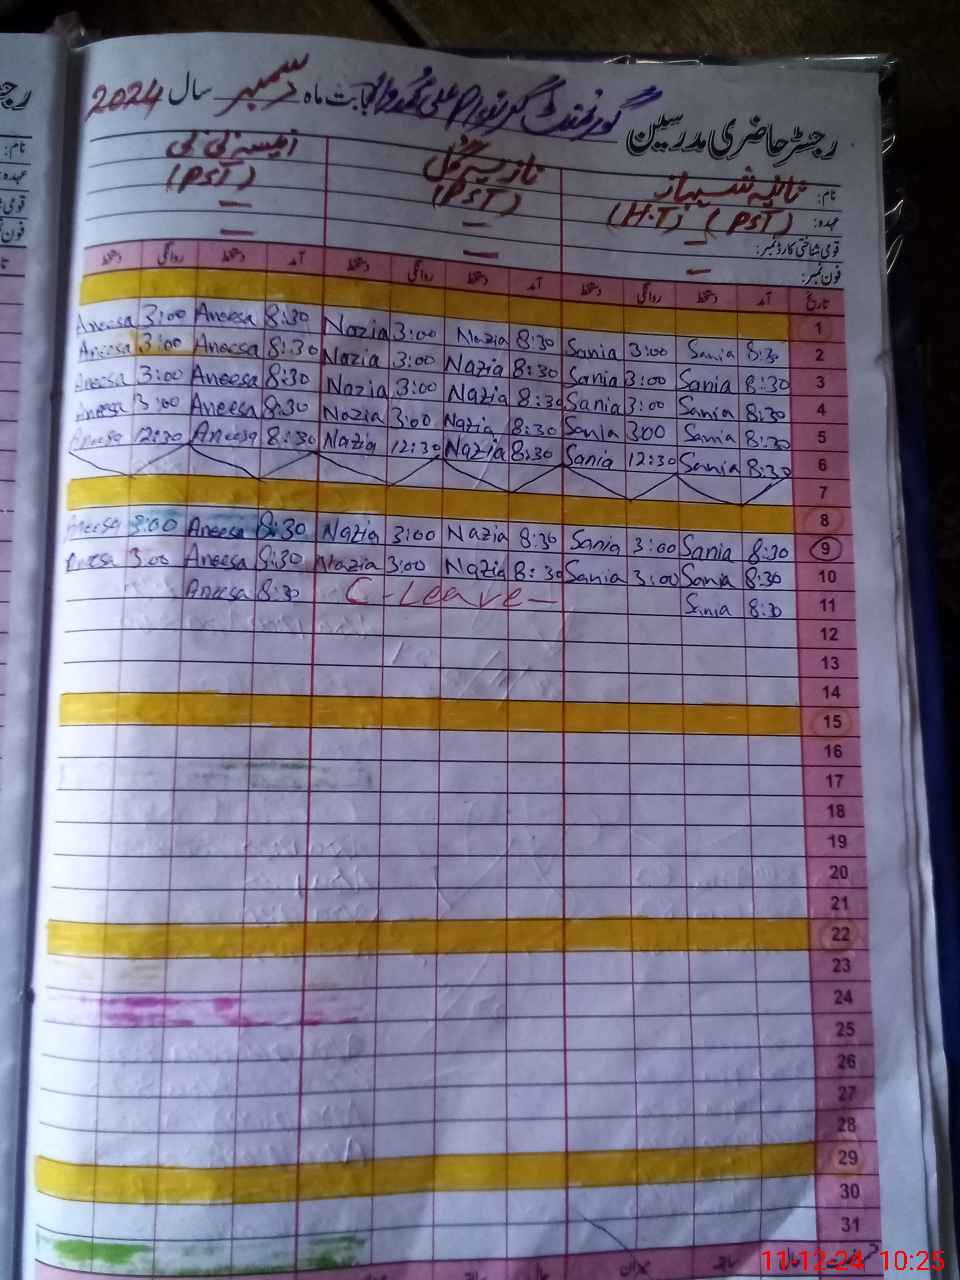 رجسٹر حاضری مدرسین گورنمنٹ گرلز بابت ماہ دسمبر سال 2024
نام: ثانیہ شہباز نازیہ گل انیسہ بی بی
عہدہ: (PST) (H.T) (PST) (PST)
قومی شناختی کارڈ نمبر: — — —
فون نمبر: — — —
تاریخ آمد دستخط روانگی دستخط آمد دستخط روانگی دستخط آمد دستخط روانگی دستخط
1
Aneesa 3:00 Aneesa 8:30 Nazia 3:00 Nazia 8:30 Sania 3:00 Sania 8:30 2
Aneesa 3:00 Aneesa 8:30 Nazia 3:00 Nazia 8:30 Sania 3:00 Sania 8:30 3
Aneesa 3:00 Aneesa 8:30 Nazia 3:00 Nazia 8:30 Sania 3:00 Sania 8:30 4
Aneesa 3:00 Aneesa 8:30 Nazia 3:00 Nazia 8:30 Sania 300 Sania 8:30 5
Aneesa 12:30 Aneesa 8:30 Nazia 12:30 Nazia 8:30 Sania 12:30 Sania 8:30 6
7
8
Aneesa 3:00 Aneesa 8:30 Nazia 3:00 Nazia 8:30 Sania 3:00 Sania 8:30 9
Aneesa 3:00 Aneesa 8:30 Nazia 3:00 Nazia 8:30 Sania 3:00 Sania 8:30 10
Aneesa 8:30 C-Leave- Sania 8:30 11
12
13
14
15
16
17
18
19
20
21
22
23
24
25
26
27
28
29
30
31
11-12-24 10:25